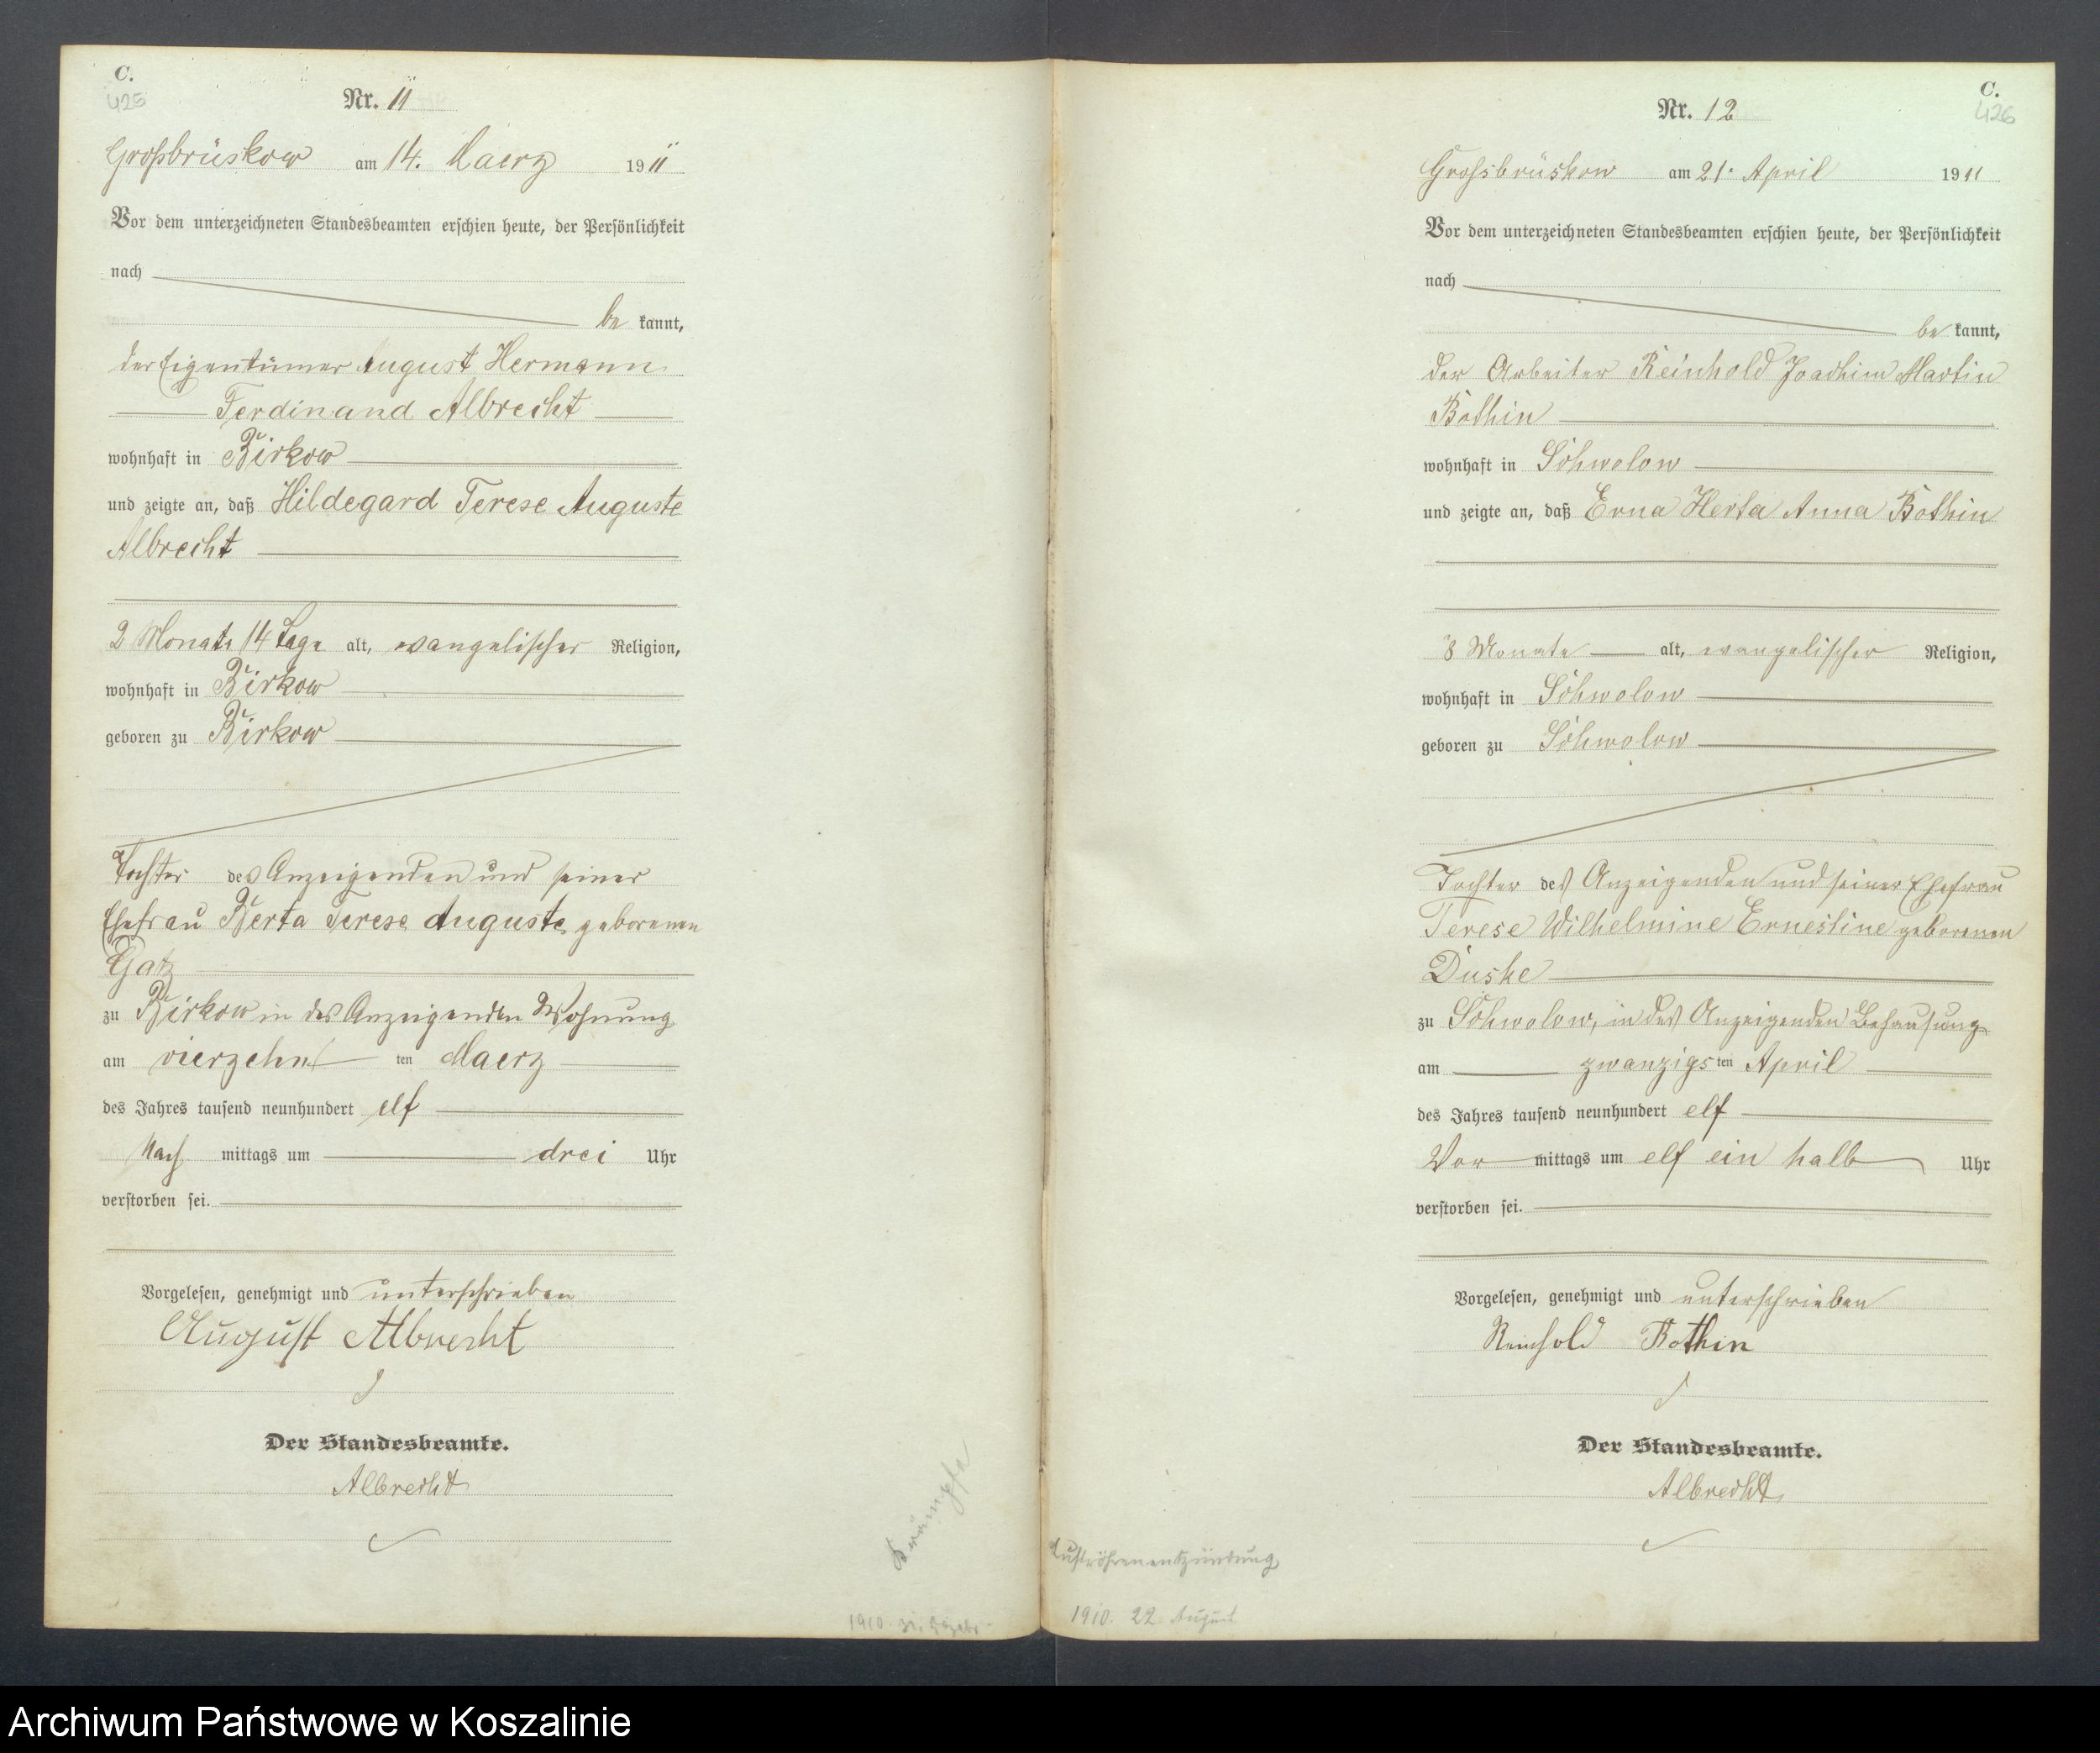 C.
425
Nr. 11
Großbrüskow am 14. Maerz 1911
Vor dem unterzeichneten Standesbeamten erschien heute, der Persönlichkeit
nach
be kannt,
der Eigentümer August Hermann
Ferdinand Albrecht
wohnhaft in Birkow
und zeigte an, daß Hildegard Terese Auguste
Albrecht
2 Monate 14 Tage alt, evangelischer Religion,
wohnhaft in Birkow
geboren zu Birkow
Tochter des Anzeigenden und seiner
Ehefrau Berta Terese Auguste geborenen
Gatz
zu Birkow in des Anzeigenden Wohnung
am vierzehn ten Maerz
des Jahres tausend neunhundert elf
Nach mittags um drei Uhr
verstorben sei.
Vorgelesen, genehmigt und unterschrieben
August Albrecht
Der Standesbeamte.
Albrecht
Krämpfe
1910. 31. Dezbr.
C.
426
Nr. 12
Grossbrüskow am 21. April 1911
Vor dem unterzeichneten Standesbeamten erschien heute, der Persönlichkeit
nach
be kannt,
der Arbeiter Reinhold Joachim Martin
Bothin
wohnhaft in Schwolow
und zeigte an, daß Erna Herta Anna Bothin
8 Monate alt, evangelischer Religion,
wohnhaft in Schwolow
geboren zu Schwolow
Tochter des Anzeigenden und seiner Ehefrau
Terese Wilhelmine Ernestine geborenen
Duske
zu Schwolow, in des Anzeigenden Behausung
am zwanzigs ten April
des Jahres tausend neunhundert elf
Vor mittags um elf ein halb Uhr
verstorben sei.
Vorgelesen, genehmigt und unterschrieben
Reinhold Bothin
Der Standesbeamte.
Albrecht
Luftröhrenentzündung
1910. 22. August
Archiwum Państwowe w Koszalinie